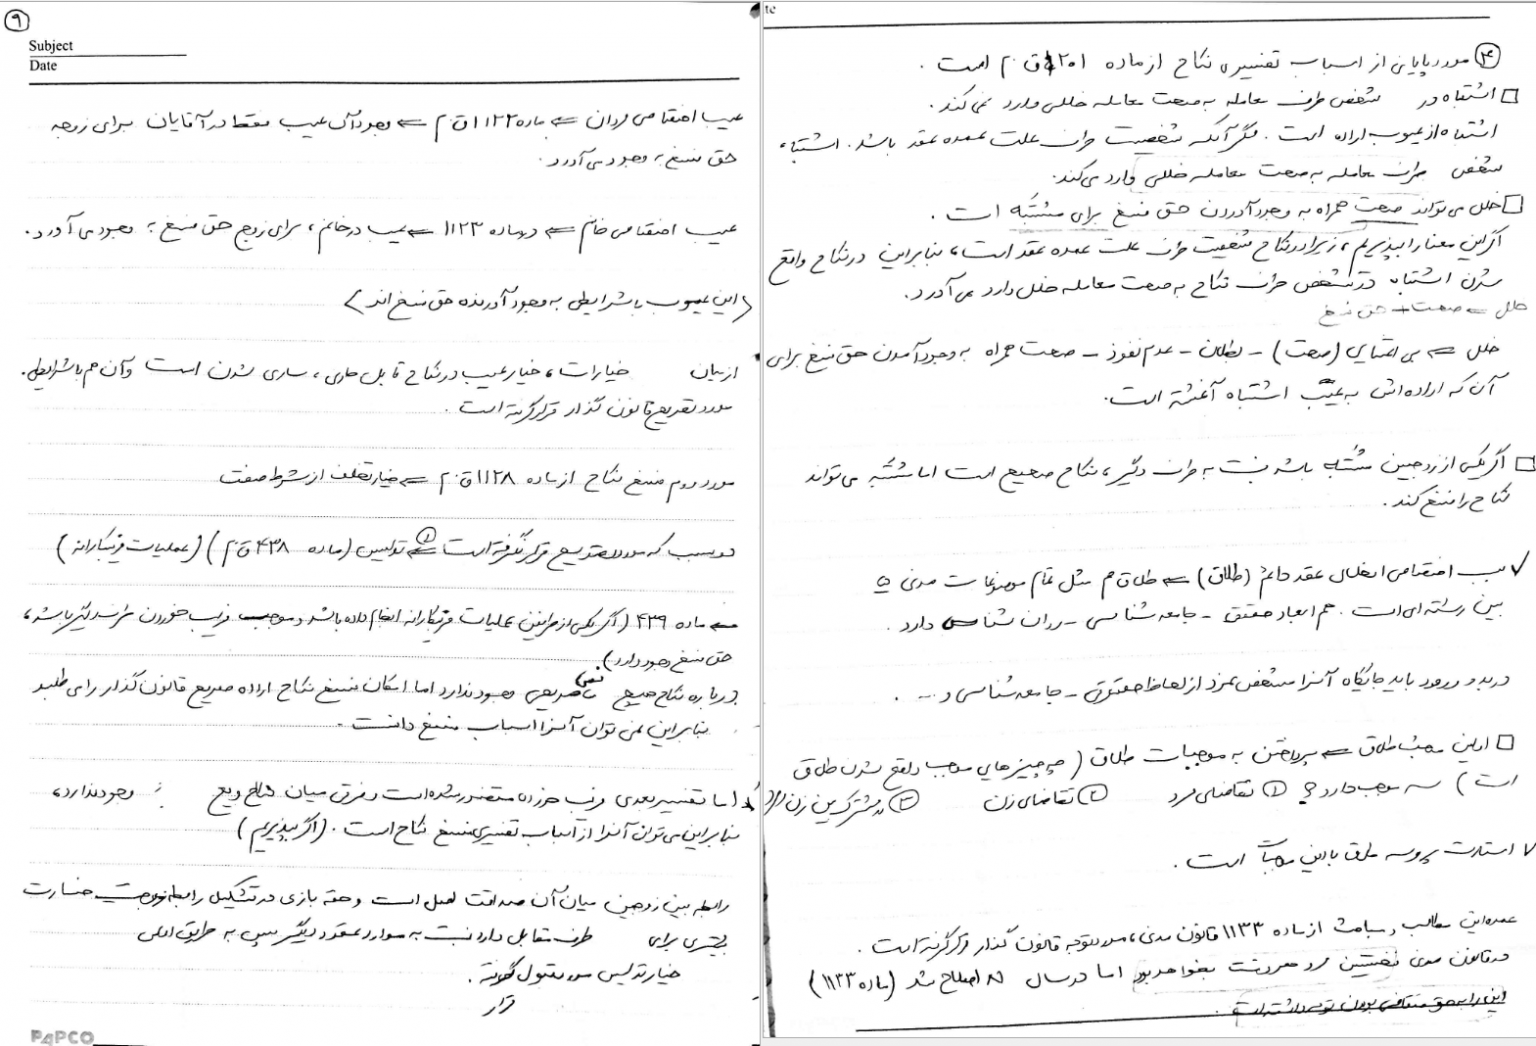 ۹
Subject
Date
عیب اختصاصی مردان ⇐ ماده ۱۱۲۲ ق.م ⇐ وجود آن عیب فقط در آقایان برای زوجه
حق فسخ به وجود می‌آورد.
عیب اختصاصی خانم ⇐ در ماده ۱۱۲۳ ⇐ عیب در خانم، برای زوج حق فسخ به وجود می‌آورد.
⟨این عیوب با شرایطی به وجود آورنده حق فسخ‌اند⟩
از میان خیارات، خیار عیب در نکاح قابل جاری، ساری شدن است و آن هم با شرایطی.
مورد تصریح قانون گذار قرار گرفته است.
مورد دوم فسخ نکاح از ماده ۱۱۲۸ ق.م ⇐ خیار تخلف از شرط صفت
دو سبب که مورد تصریح قرار نگرفته است ⇐ ① تدلیس (ماده ۴۳۸ ق.م) (عملیات فریبکارانه)
⇐ ماده ۴۳۹ (اگر یکی از طرفین عملیات فریبکارانه انجام داده باشد و موجب فریب خوردن طرف دیگر باشد،
حق فسخ وجود دارد)
درباره نکاح هیچ نص صریحی وجود ندارد اما امکان فسخ نکاح اراده صریح قانون گذار را می طلبد
بنابراین نمی توان آنرا اسباب فسخ دانست.
اما تفسیر بعدی فریب خورده متضرر شده است و فرقی میان نکاح و بیع وجود ندارد،
بنابراین می توان آنرا از اسباب تفسیری فسخ نکاح است. (اگر بپذیریم)
رابطه بین زوجین میان آن صداقت اصل است و حقه بازی در تشکیل رابطه زوجیت خسارت
بیشتری برای طرف مقابل دارد نسبت به موارد عقود دیگر پس به طریق اولی
خیار تدلیس مورد قبول گونه.
قرار
PAPCO
te
④ مورد پایانی از اسباب تفسیری نکاح از ماده ۲۰۱ ق.م است.
□ اشتباه در شخص طرف معامله به صحت معامله خللی وارد نمی کند.
اشتباه از عیوب اراده است. مگر آنکه شخصیت طرف علت عمده عقد باشد. اشتباه
شخص طرف معامله به صحت معامله خللی وارد می کند.
□ خلل می تواند صحت همراه به وجود آوردن حق فسخ برای مشتبه است.
اگر این معنا را بپذیریم، زیرا در نکاح شخصیت طرف علت عمده عقد است، بنابراین در نکاح واقع
شدن اشتباه در شخص طرف نکاح به صحت معامله خلل وارد می آورد.
خلل ⇐ صحت + حق فسخ
خلل ⇐ بی اعتنایی (صحت) - بطلان - عدم نفوذ - صحت همراه به وجود آمدن حق فسخ برای
آن که اراده اش به عیب اشتباه آغشته است.
□ اگر یکی از زوجین مشتبه باشد نسبت به طرف دیگر، نکاح صحیح است اما مشتبه می تواند
نکاح را فسخ کند.
✓ سبب اختصاصی انحلال عقد دائم (طلاق) ⇐ طلاق هم مثل تمام موضوعات مدنی
بین رشته ای است. هم ابعاد حقوقی - جامعه شناسی - روان شناسی دارد.
در بدو ورود باید جایگاه آنرا مشخص کرد از لحاظ حقوقی - جامعه شناسی و ... .
□ اولین مبحث طلاق ⇐ پرداختن به موجبات طلاق (چه چیزهایی موجب واقع شدن طلاق
است) سه موجب دارد؟ ① تقاضای مرد ② تقاضای زن ③ مشترک بین زن و مرد
✓ استارت پروسه طلاق با این موجبات است.
عمده این مطالب و مباحث از ماده ۱۱۳۳ قانون مدنی، مورد توجه قانون گذار قرار گرفته است.
در قانون مدنی نخستین مرد هر وقت بخواهد بود اما در سال ۸۱ اصلاح شد (ماده ۱۱۳۳)